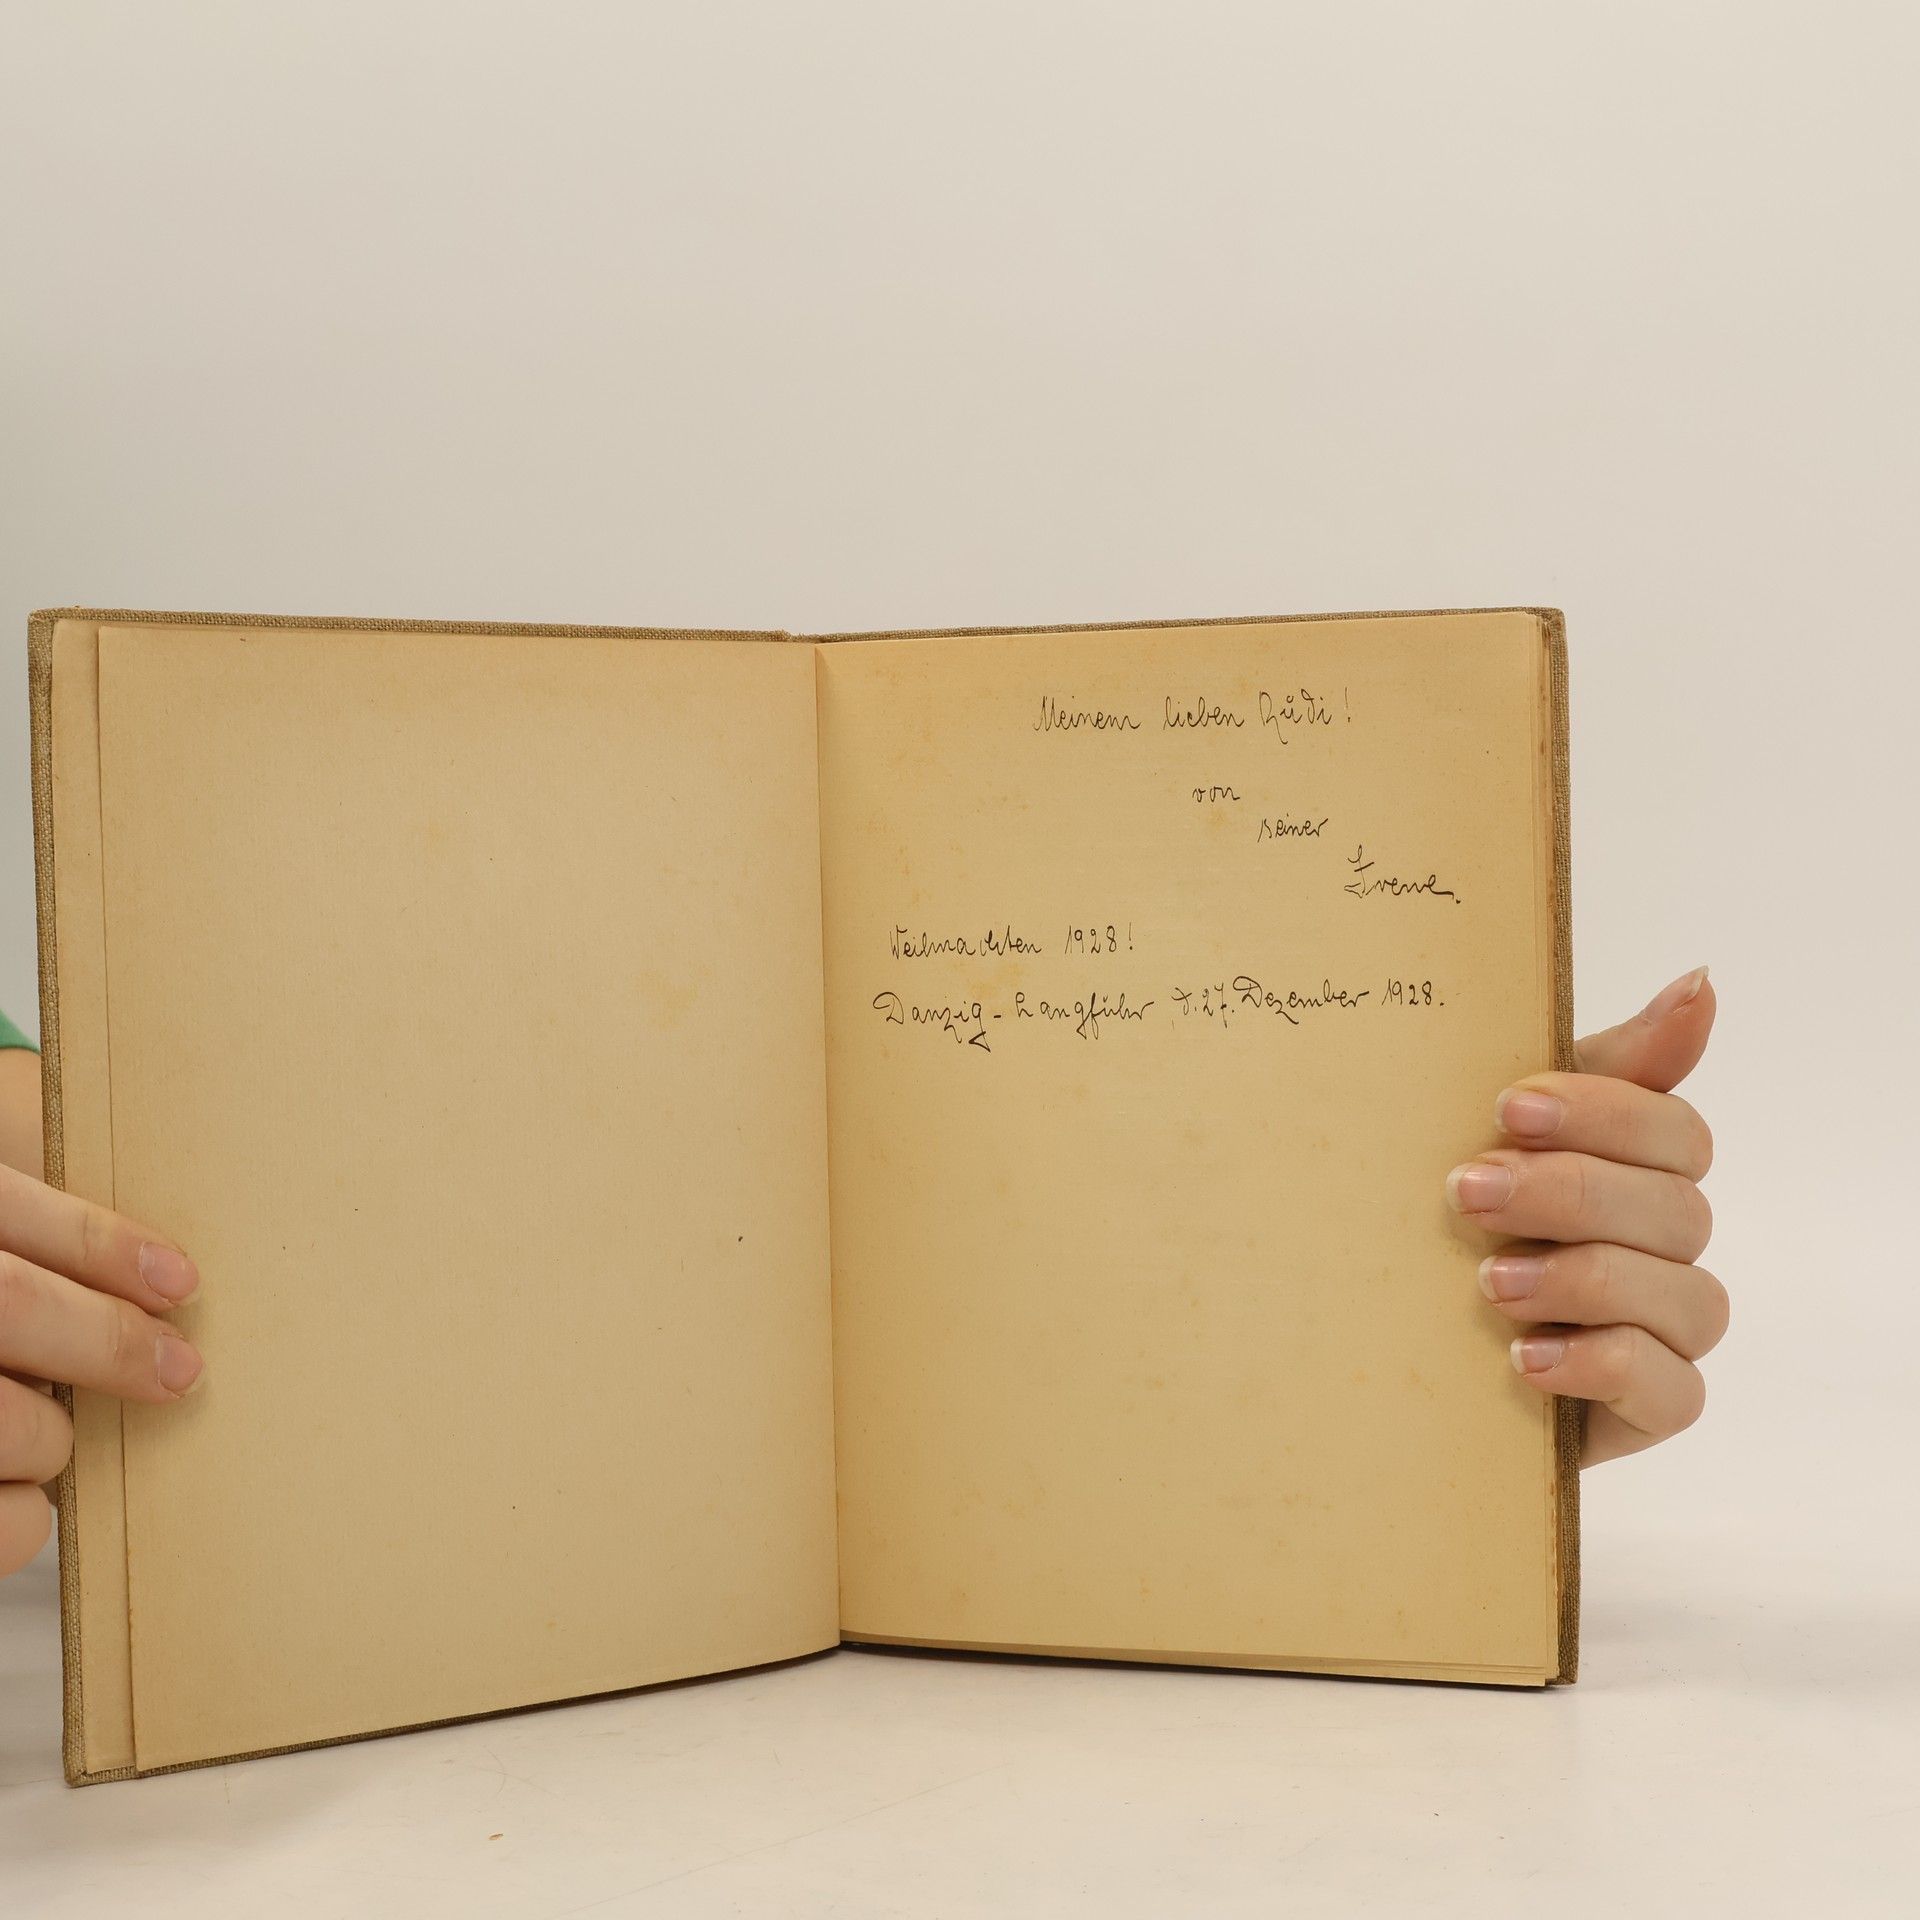 Meinem lieben Rudi!
von
seiner
Irene.
Weihnachten 1928!
Danzig-Langfuhr, d. 27. Dezember 1928.